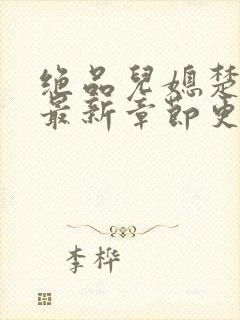 绝品儿媳楚
最新章节更
李桦